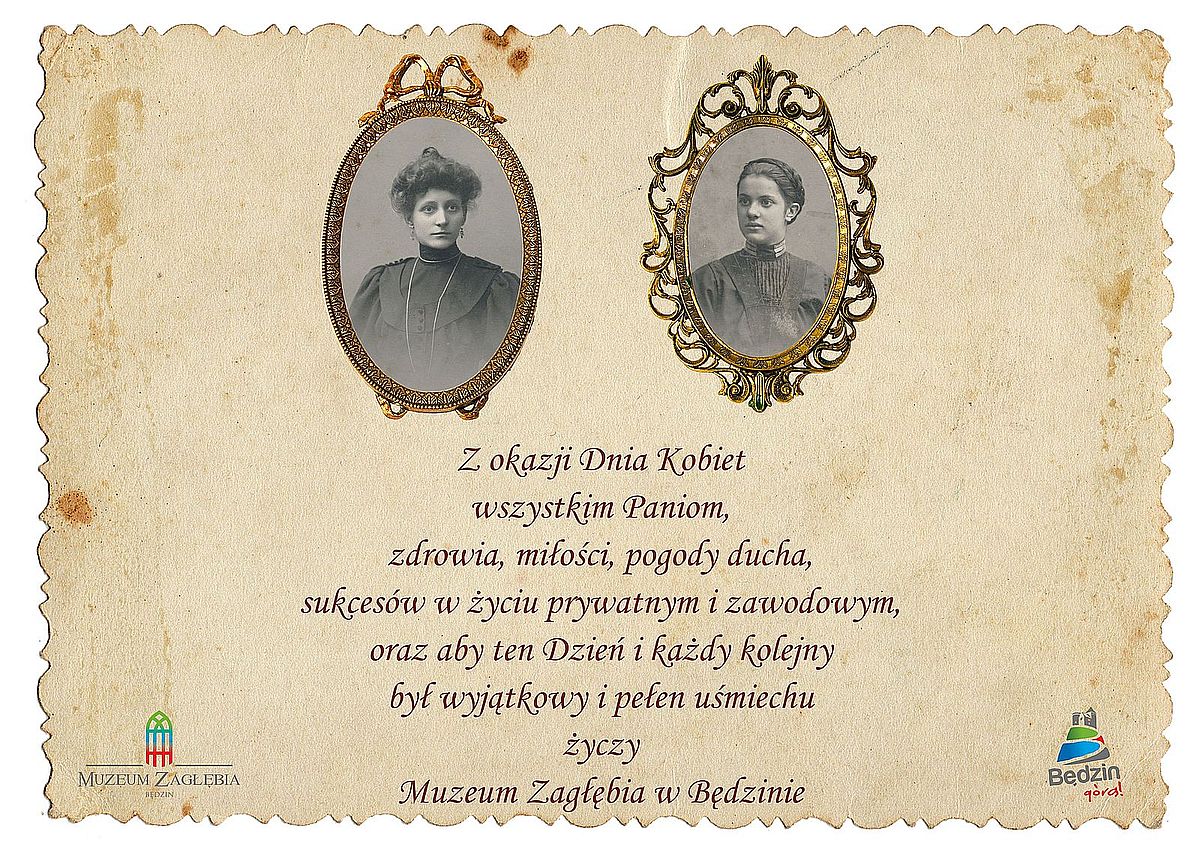 Z okazji Dnia Kobiet
wszystkim Paniom,
zdrowia, miłości, pogody ducha,
sukcesów w życiu prywatnym i zawodowym,
oraz aby ten Dzień i każdy kolejny
był wyjątkowy i pełen uśmiechu
życzy
Muzeum Zagłębia w Będzinie
MUZEUM ZAGŁĘBIA
BĘDZIN
Będzin
góra!